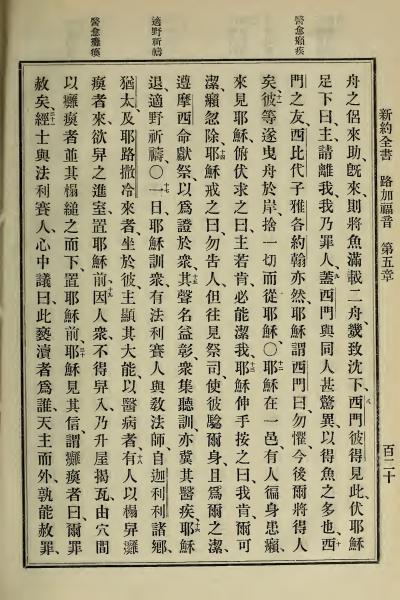 新約全書　路加福音　第五章
百二十
醫愈癩疾
適野祈禱
醫愈癱瘓
舟之侶來助、旣來、則將魚滿載二舟、幾致沈下、八西門彼得見此、伏耶穌
足下曰、主、請離我、我乃罪人、九蓋西門與同人甚驚異、以得魚之多也、十西
門之友、西比代子雅各約翰亦然、耶穌謂西門曰、勿懼、今後爾將得人
矣、十一彼等遂曳舟於岸、捨一切而從耶穌、○十二耶穌在一邑、有人徧身患癩、
來見耶穌、俯伏求之曰、主若肯、必能潔我、十三耶穌伸手按之曰、我肯、爾可
潔、癩忽除、十四耶穌戒之曰、勿告人、但往見祭司、使彼驗爾身、且爲爾之潔、
遵摩西命獻祭、以爲證於衆、十五其聲名益彰、衆集聽訓、亦冀其醫疾、十六耶穌
退、適野祈禱、○十七一日、耶穌訓衆、有法利賽人與敎法師、自迦利利諸鄉、
猶太及耶路撒冷來者、坐於彼、主顯其大能、以醫病者、十八有人以榻舁癱
瘓者來、欲舁之進室、置耶穌前、十九因人衆、不得舁入、乃升屋揭瓦、由穴間
以癱瘓者並其榻縋之而下、置耶穌前、二十耶穌見其信、謂癱瘓者曰、爾罪
赦矣、二十一經士與法利賽人心中議曰、此褻瀆者爲誰、天主而外、孰能赦罪、